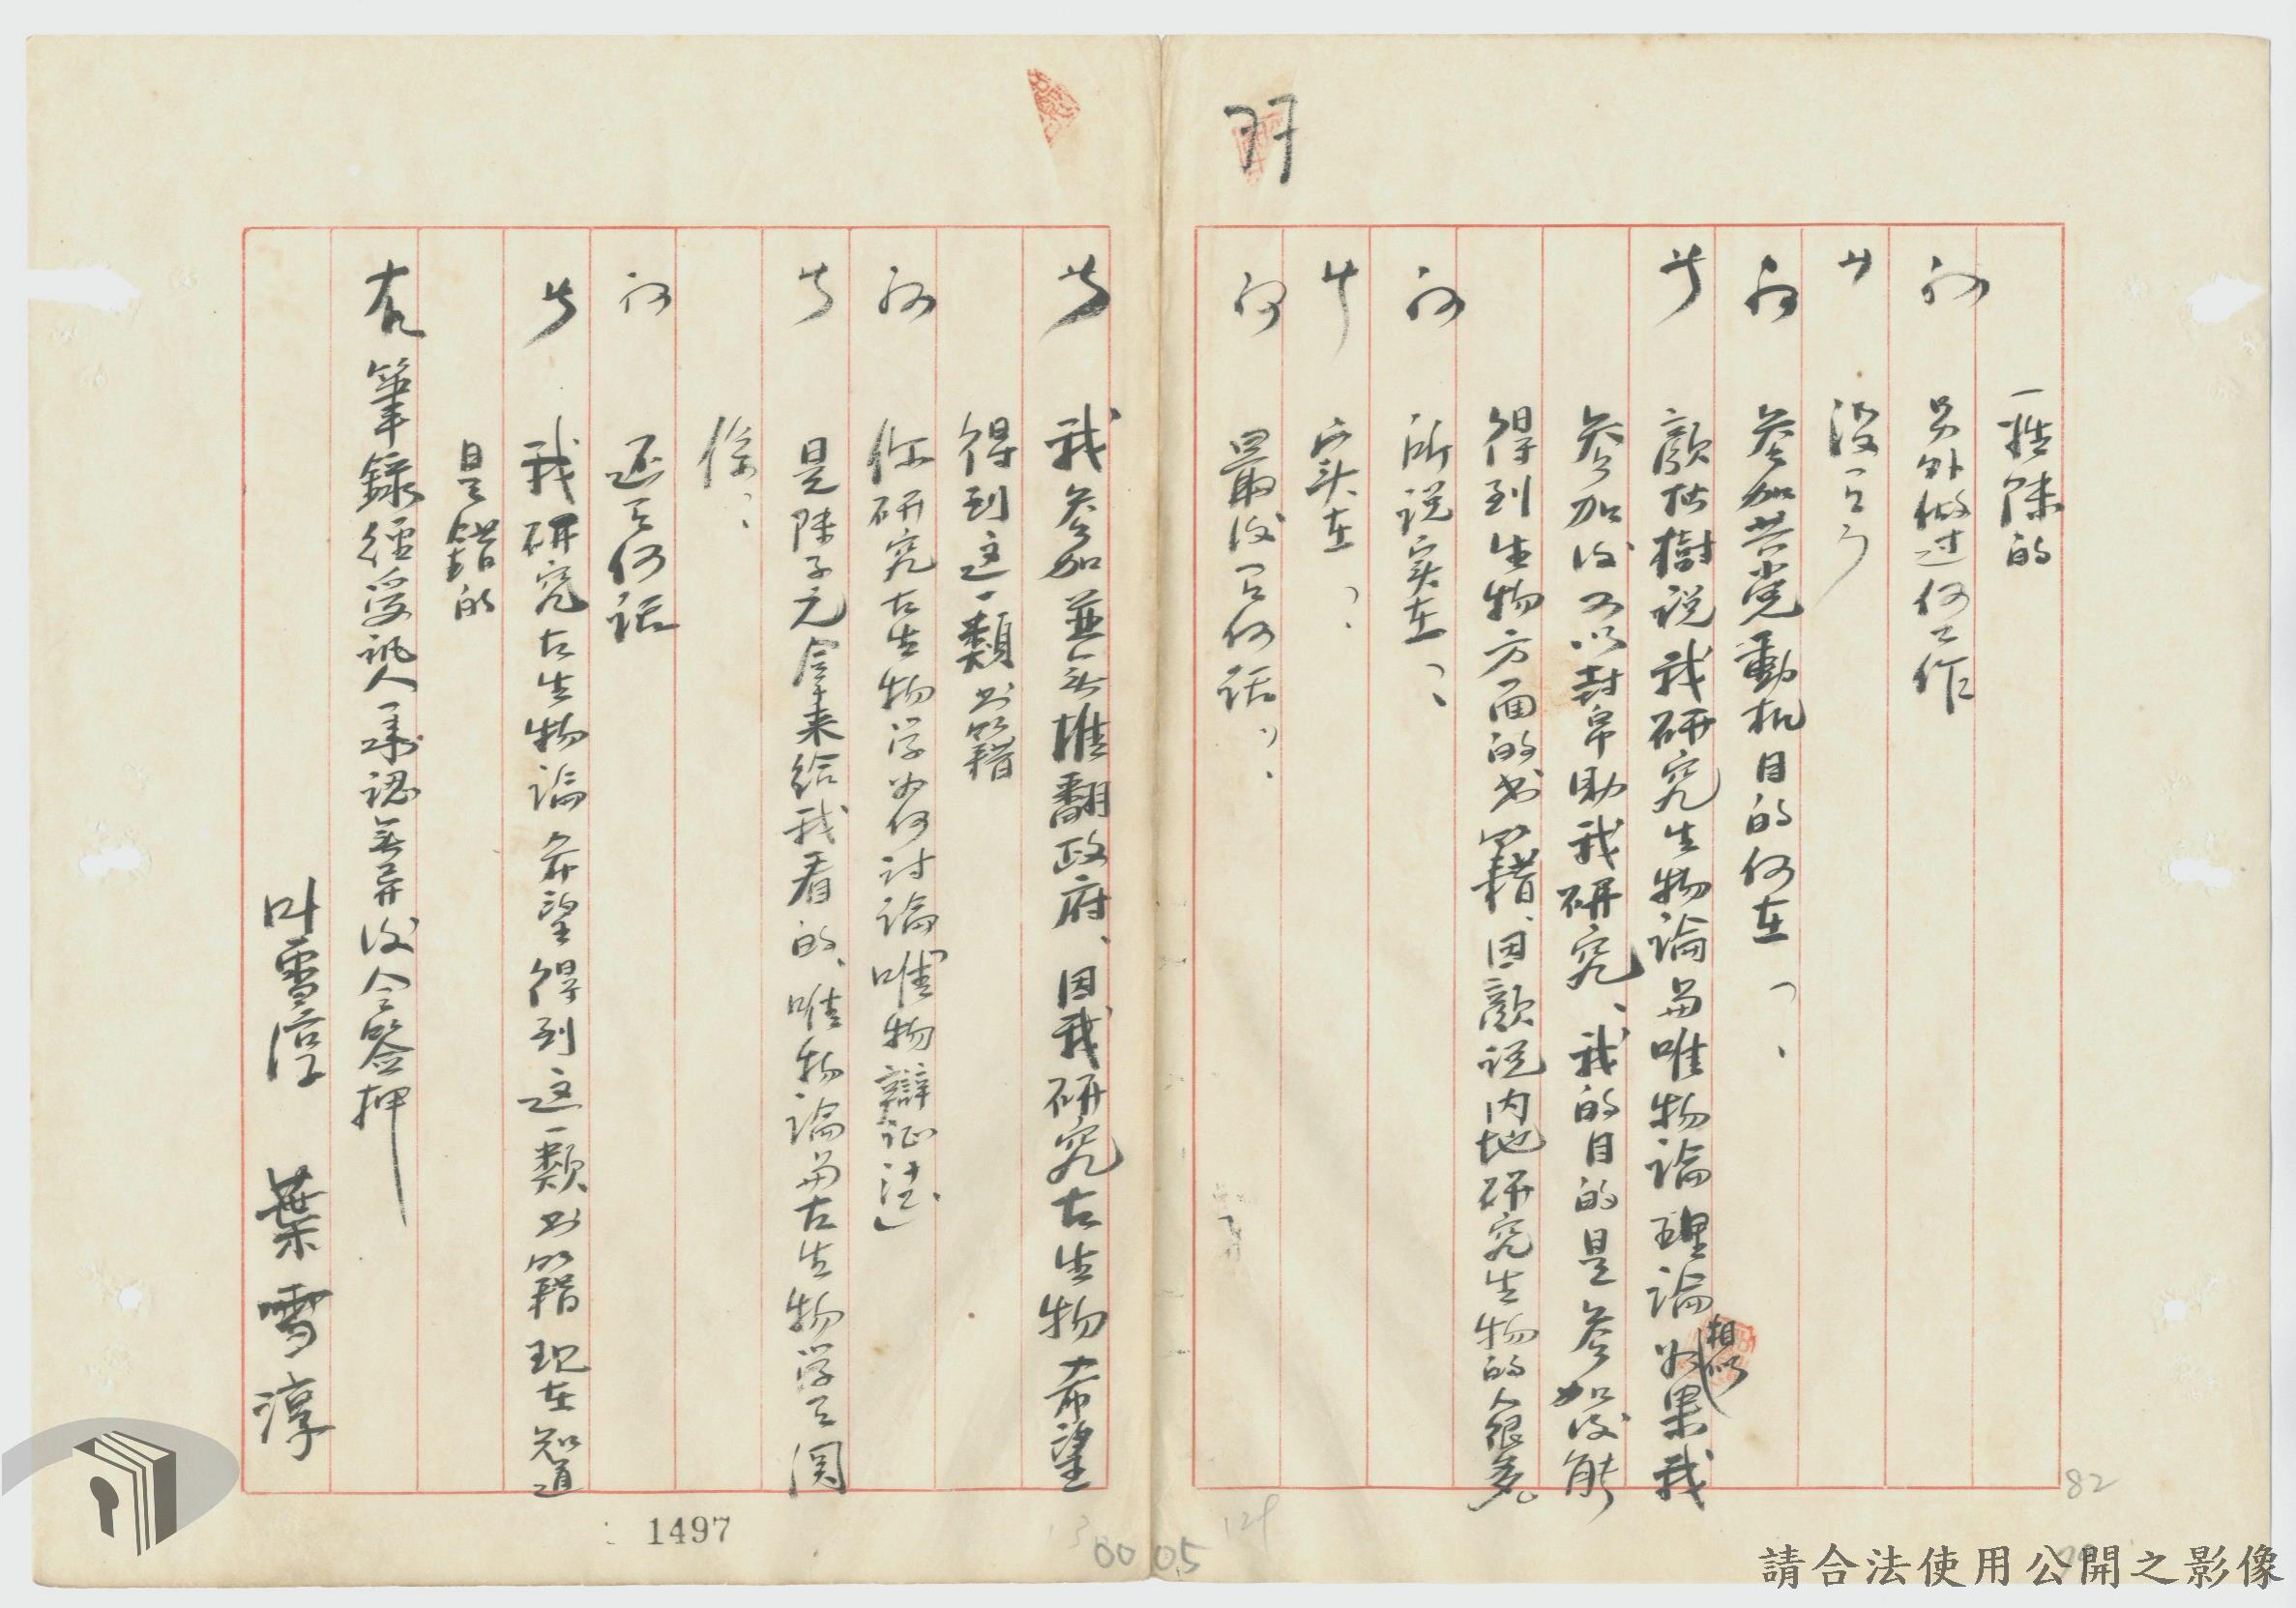 一姓陳的
问 另外做过何工作
答 没有
问 参加共党動机目的何在、
答 顏枯樹説我研究生物論与唯物論理論相似如果我
参加後可以封帛助我研究、我的目的是参加後能
得到生物方面的书籍、因顏説内地研究生物的人很多
问 所説实在、
答 实在、
问 最後有何話、
答 我参加並無推翻政府、因我研究古生物希望
得到这一類书籍
问 你研究古生物学为何討論「唯物辯証法」
答 是陳子元拿来給我看的、唯物論与古生物学有関
係、
问 还有何話
答 我研究古生物論希望得到这一類书籍現在知道
是錯的
右筆録經受訊人承認無异後令簽押
叶雪淳 葉雪淳
1497
0005
82
請合法使用公開之影像